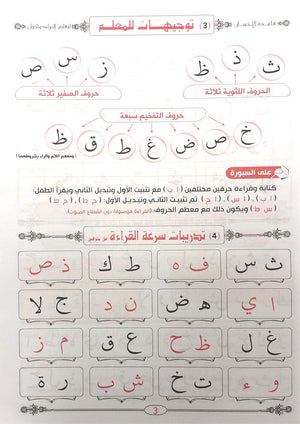 قاعدة الإحسان
لتعليم القراءة والقرآن
(3) توجيهات للمعلم
ث ذ ظ
ز س ص
الحروف اللثوية ثلاثة
حروف الصفير ثلاثة
حروف التفخيم سبعة
خ ص ض غ ط ق ظ
(ومعهم اللام والراء بشروطهما)
على السبورة
كتابة وقراءة حرفين مختلفين ( ا ب ) مع تثبيت الأول وتبديل الثاني ويقرأ الطفل:
( ا ب ) , ( ا س ) , ( ا ح ) ثم تثبيت الثاني وتبديل الأول : ( ح ط )
( س ط ) ويكون ذلك مع معظم الحروف. (القراءة موصولة دون انقطاع الصوت)
(4) تدريبات سرعة القراءة من حرفين
ث س ف ه ط ك ذ ص
ا ي ه ض ن د ج لا
غ ل ظ ح ع ق م ز
و ء ت خ ش ب ر ة
3